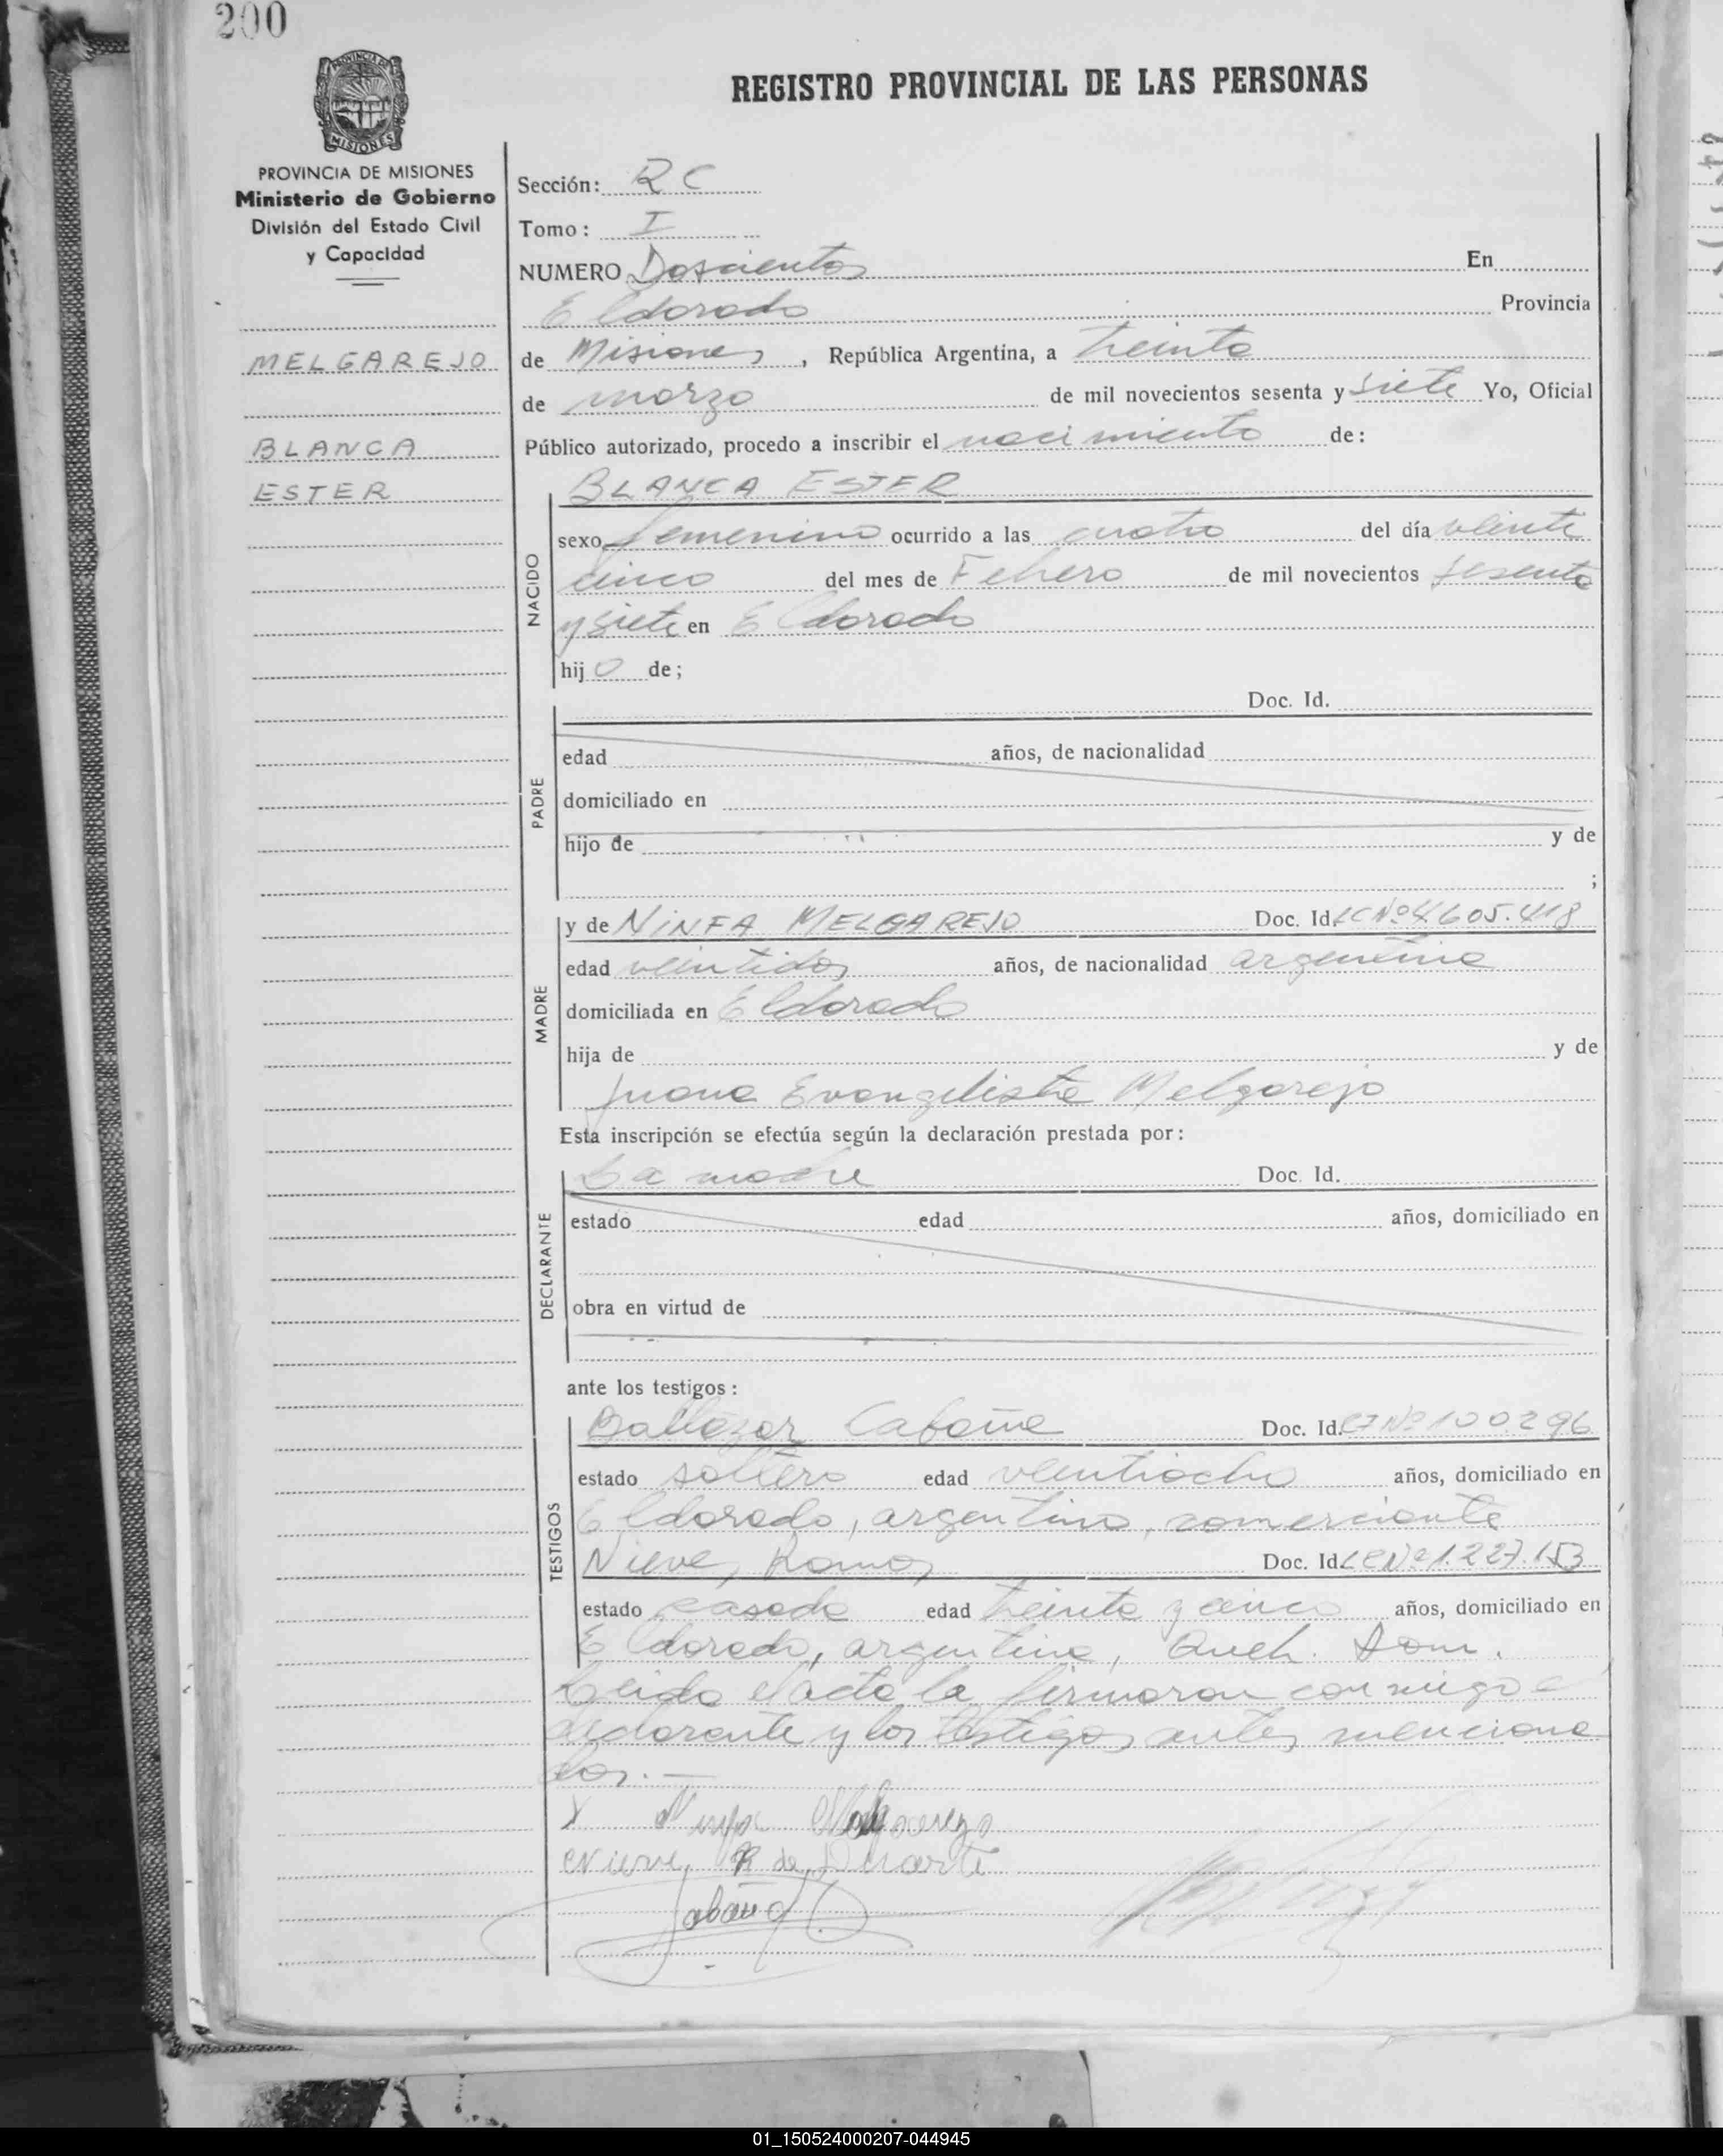 200
REGISTRO PROVINCIAL DE LAS PERSONAS
PROVINCIA DE MISIONES
MISIONES
PROVINCIA DE MISIONES
Ministerio de Gobierno
División del Estado Civil
y Capacidad
MELGAREJO
BLANCA
ESTER
Sección: RC
Tomo: I
NUMERO Doscientos En
Eldorado Provincia
de Misiones, República Argentina, a treinta
de marzo de mil novecientos sesenta y siete Yo, Oficial
Público autorizado, procedo a inscribir el nacimiento de:
NACIDO
BLANCA ESTER
sexo femenino ocurrido a las cuatro del día veinte
cinco del mes de Febrero de mil novecientos sesenta
y siete en Eldorado
hijo de;
PADRE
Doc. Id.
edad años, de nacionalidad
domiciliado en
hijo de y de
;
MADRE
y de NINFA MELGAREJO Doc. Id. LC Nº 4.605.418
edad veintidos años, de nacionalidad argentina
domiciliada en Eldorado
hija de y de
Juana Evangelista Melgarejo
Esta inscripción se efectúa según la declaración prestada por:
DECLARANTE
La madre Doc. Id.
estado edad años, domiciliado en
obra en virtud de
ante los testigos:
TESTIGOS
Baltazar Cabaña Doc. Id. CI Nº 100.296
estado soltero edad veintiocho años, domiciliado en
Eldorado, argentino, comerciante
Nieves Ramos Doc. Id. LC Nº 1.227.153
estado casada edad treinta y cinco años, domiciliado en
Eldorado, argentina, Queh. Dom.
Leida el acta la firmaron conmigo
declarante y los testigos antes menciona
dos.—
X Ninfa Melgarejo
Nieve R de Duarte
Cabaña
01_150524000207-044945